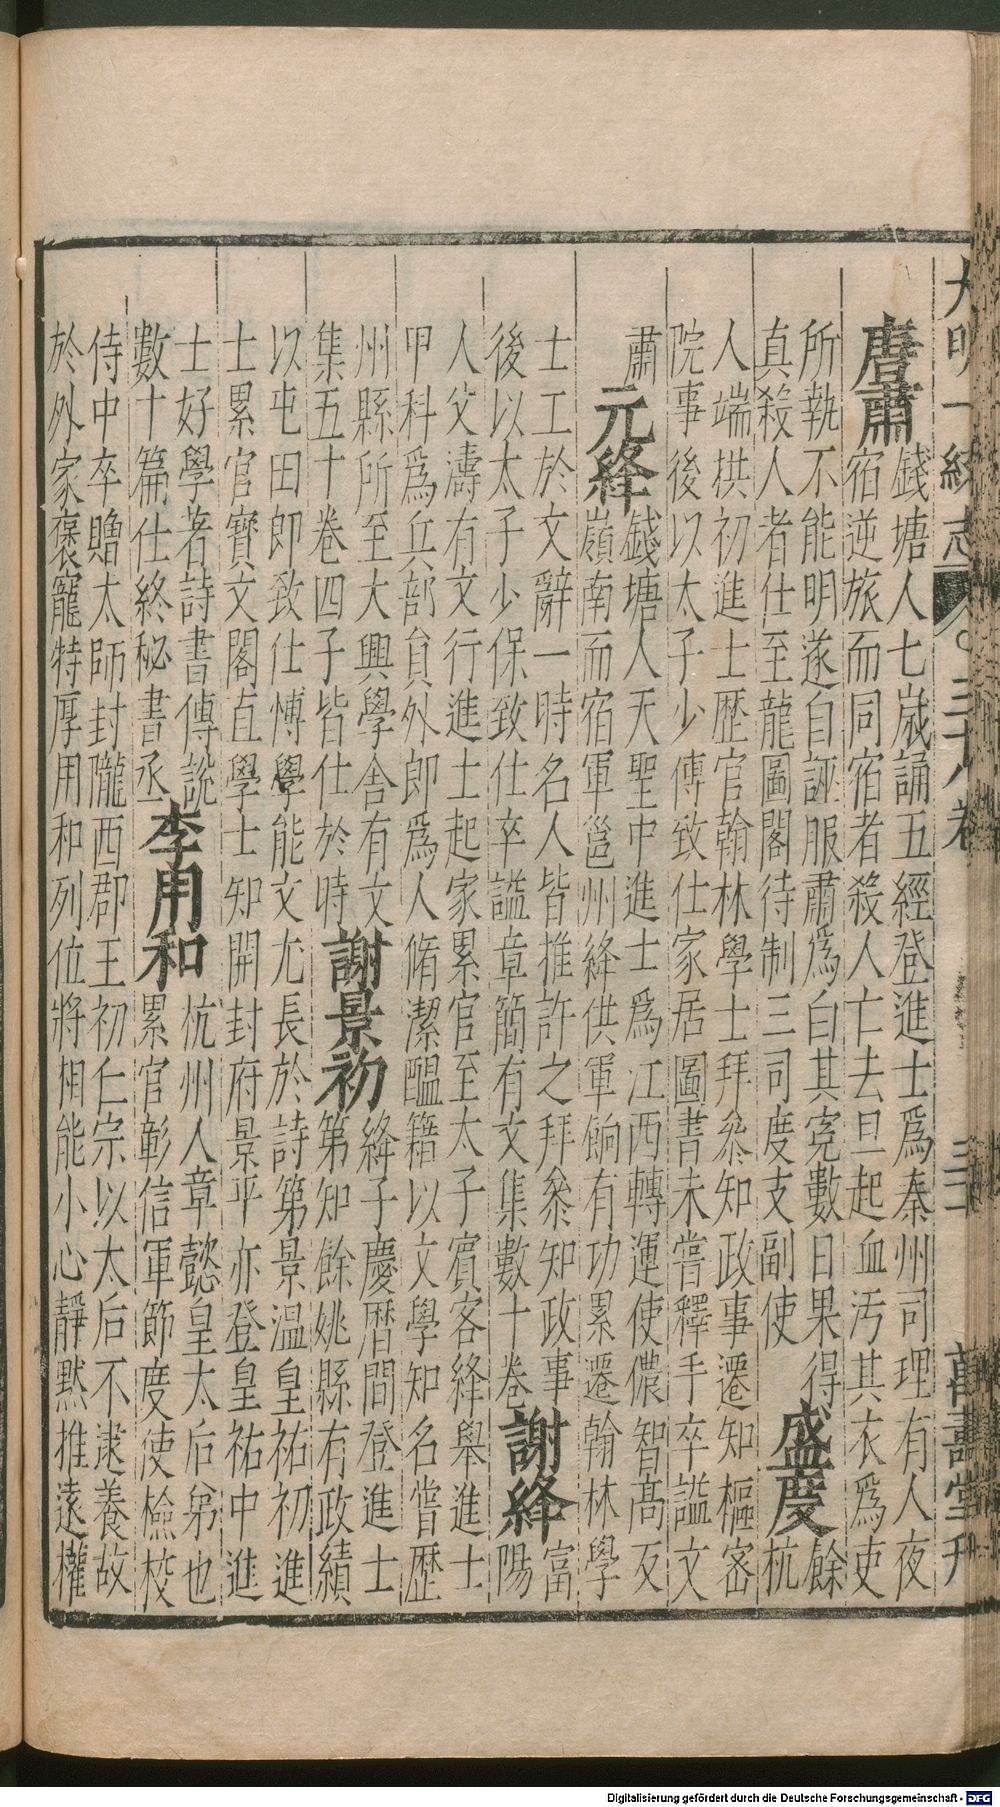 大明一統志 三十八卷 三十 萬壽堂刋
唐肅
錢塘人七歳誦五經登進士爲秦州司理有人夜
宿逆旅而同宿者殺人亡去旦起血汚其衣爲吏
所執不能明遂自誣服肅爲白其寃數日果得
真殺人者仕至龍圖閣待制三司度支副使
盛度
餘
杭
人端拱初進士歷官翰林學士拜叅知政事遷知樞宻
院事後以太子少傅致仕家居圖書未嘗釋手卒謚文
肅
元絳
錢塘人天聖中進士爲江西轉運使儂智髙反
嶺南而宿軍邕州絳供軍餉有功累遷翰林學
士工於文辭一時名人皆推許之拜叅知政事
後以太子少保致仕卒謚章簡有文集數十卷
謝絳
富
陽
人父濤有文行進士起家累官至太子賓客絳舉進士
甲科爲兵部貟外郎爲人脩潔醖籍以文學知名嘗歷
州縣所至大興學舍有文
集五十卷四子皆仕於時
謝景初
絳子慶曆間登進士
第知餘姚縣有政績
以屯田郎致仕愽學能文尤長於詩第景温皇祐初進
士累官寳文閣直學士知開封府景平亦登皇祐中進
士好學著詩書傳說
數十篇仕終秘書丞
李用和
杭州人章懿皇太后弟也
累官彰信軍節度使檢校
侍中卒贈太師封隴西郡王初仁宗以太后不逮養故
於外家褒寵特厚用和列位將相能小心靜黙推遠權
Digitalisierung gefördert durch die Deutsche Forschungsgemeinschaft - DFG